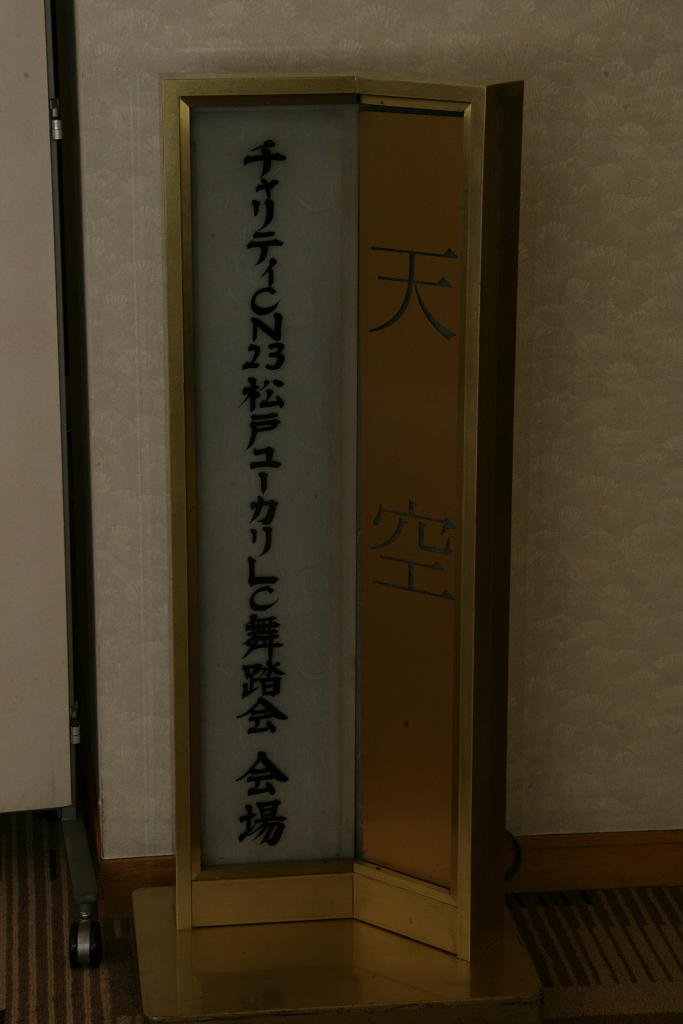 天空
チャリティCN23松戸ユーカリLC舞踏会 会場